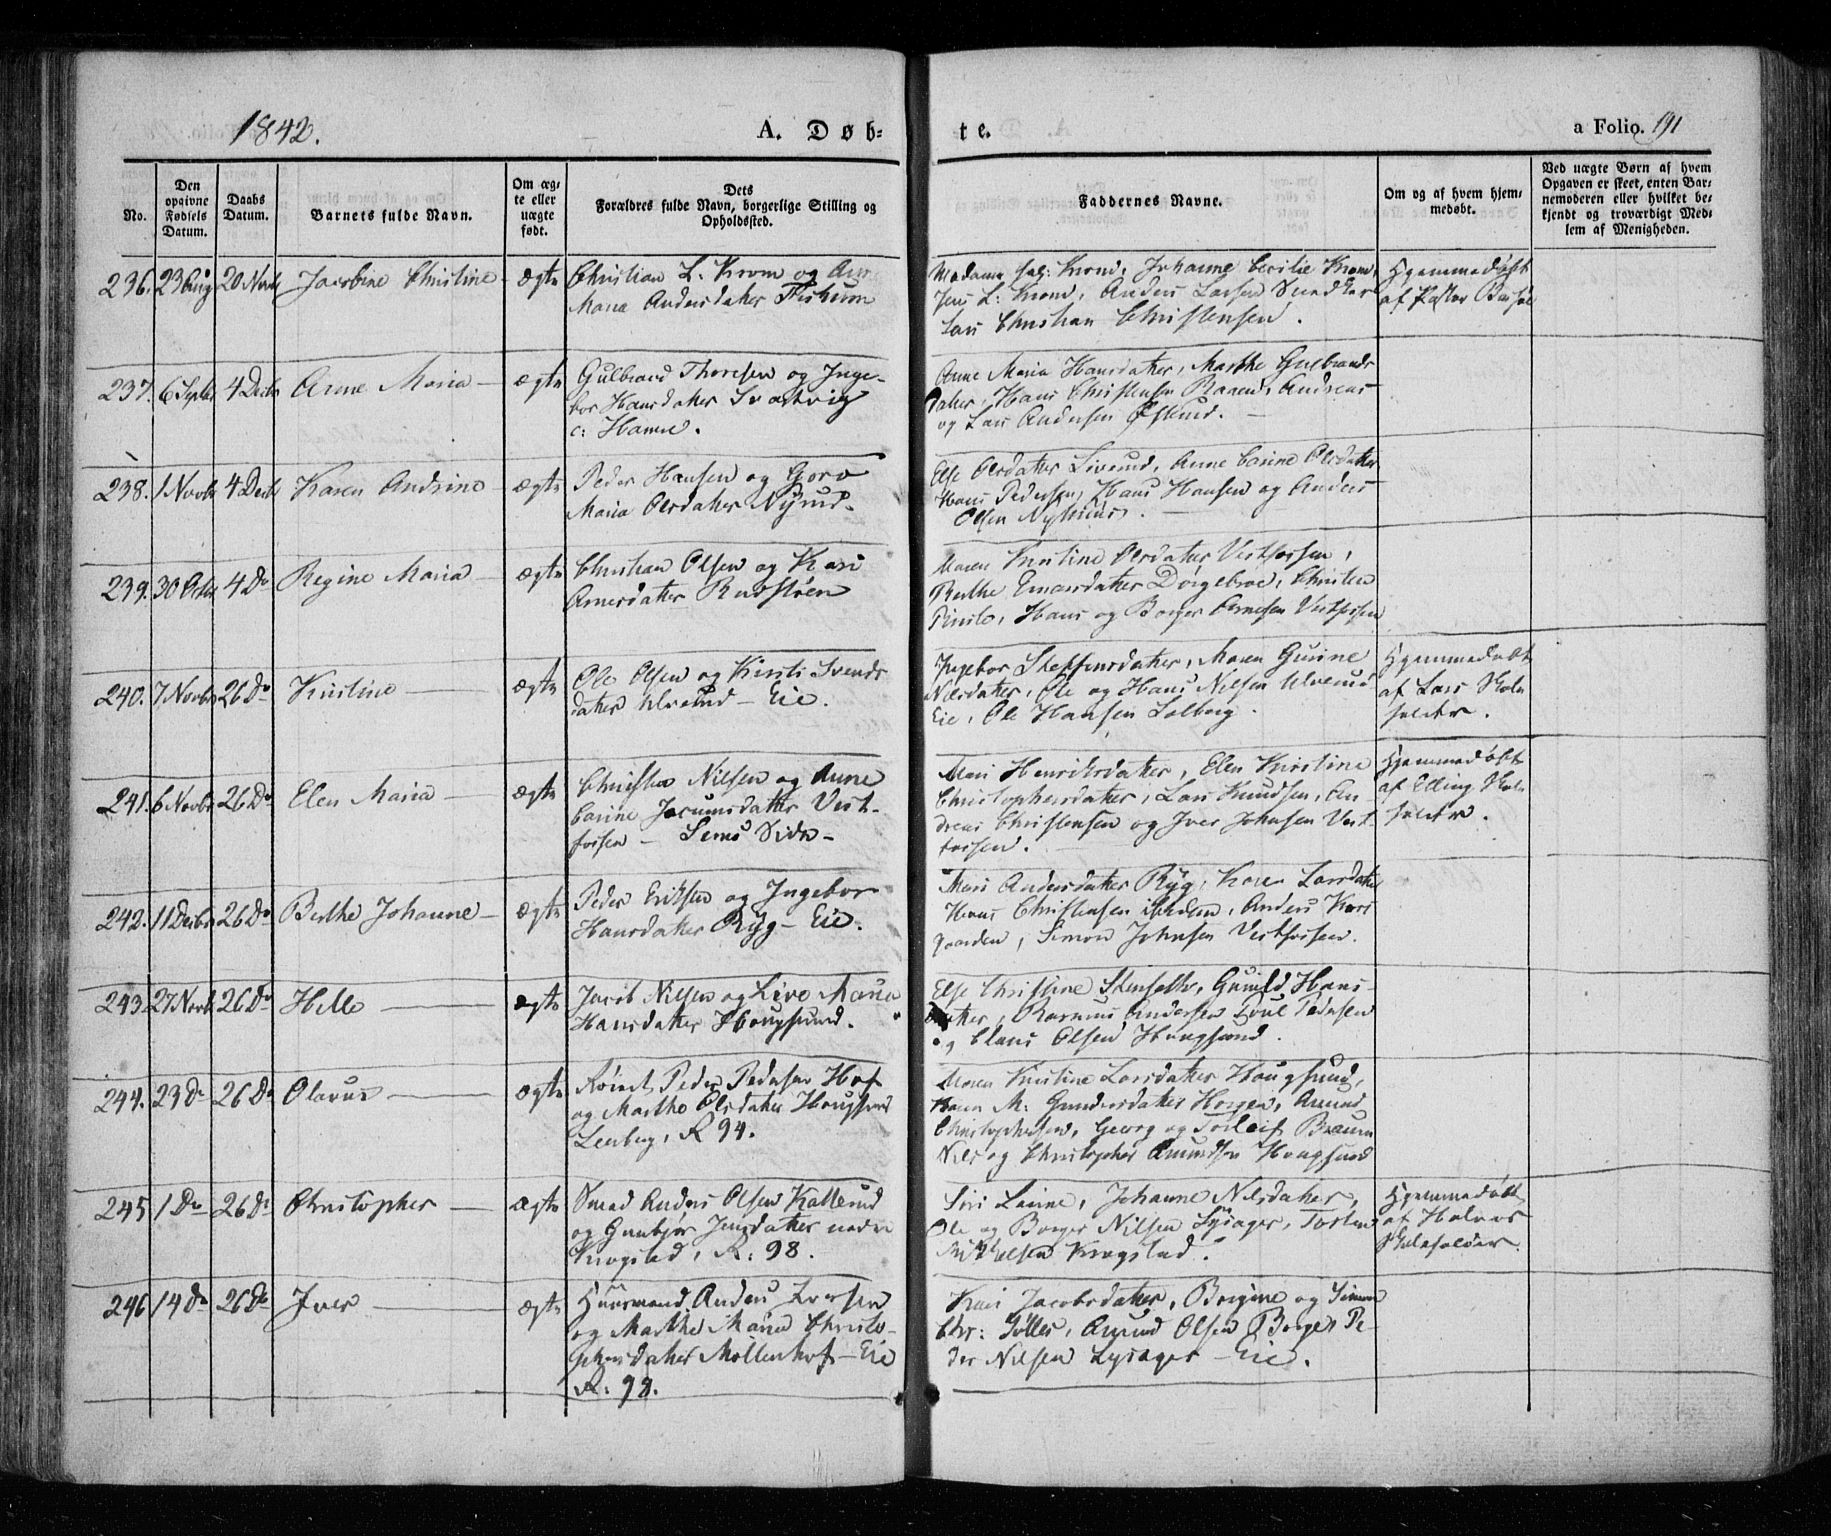 1842.
A. Døb-
te.
a Folio. 191
No.
Den opgivne Fødsels Datum.
Daabs Datum.
Barnets fulde Navn.
Om ægte eller uægte født.
Dets
Forældres fulde Navn, borgerlige Stilling og
Opholdssted.
Faddernes Navne.
Om og af hvem hjem-
medøbt.
Ved uægte Børn af hvem
Opgaven er skeet, enten Bar-
nemoderen eller hvilket be-
kjendt og troværdigt Med-
lem af Menigheden.
236. 23 Aug 20 Novb Jacobine Christine ægte
Christian L: Krom og
Maria Andersdatter Fiskum
Madame Krom, Johanne Cecilie Krom,
Jens L: Krom, Anders Larsen
Lars Christian Christensen.
Hjemmedøbt
af Pastor
237. 6 Septbr 4 Decbr Anne Maria ægte
Gulbrand Thoresen og Inge-
bor Hansdatter
c: Hamre.
Anne Maria Hansdatter, Marthe Gulbrands
datter, Hans Christensen Baaen, Andreas
og Lars Andersen Østlund.
238. 1 Novbr 4 Decbr Karen Andrine ægte
Peder Hansen og Goro
Maria Olsdatter Nyrud.
Else Olsdatter Siverud, Anne Carine Olsdatter
Hans Pedersen, Hans Hansen og Anders
Olsen
239. 30 Octbr 4 Do Regine Maria ægte
Christian Olsen og Kari
Arnesdatter
Maren Kristine Olsdatter Vestfossen,
Berthe Einarsdatter Dørgebroe, Christen
Hans og Borger Arnesen Vestfossen
240. 7 Novbr 26 Do Kristine ægte
Ole Olsen og Kirsti Svends
datter Ulvelund - Eie.
Ingebor Steffensdatter, Maren Gurine
Nilsdatter, Ole og Hans Nilsen Ulvelund
Eie, Ole Hansen Solberg.
Hjemmedøbt
af Lars Skole
holder.
241. 6 Novbr 26 Do Elen Maria ægte
Christen Nilsen og Anne
Carine Jocumsdatter Vest-
fossen - Sems Side
Mari Henriksdatter, Elen Kirstine
Christophersdatter, Lars Knudsen, An-
dreas Christensen og Iver Johnsen Vest
fossen.
Hjemmedøbt
af Elling Skole
holder.
242. 11 Decbr 26 Do Berthe Johanne ægte
Peder Eriksen og Ingebor
Hansdatter Ryg - Eie.
Mari Andersdatter Ryg, Karen Larsdatter
Hans Christensen ibidem, Anders Kors
gaarden, Simon Johnsen Vestfossen.
243. 27 Novb 26 Do Helle ægte
Jacob Nilsen og Live Maria
Hansdatter Hougsund.
Else Christine Stenseth, Gunild Hans-
datter, Rasmus Andersen Poul Pedersen
og Claus Olsen Hougsund.
244. 23 Do 26 Do Olavus ægte
Peder Pedersen Hof
og Marthe Olsdatter Hougsund
Lerberg, R 94.
Maren Kristine Larsdatter Hougsund,
Karen M: Gundersdatter Horgen, Amund
Christophersen, Georg og Torleif Braum
Nils og Christopher Amundsen Hougsund
245. 1 Do 26 Do Christopher ægte
Smed Anders Olsen Kallerud
og Gunbjør Jensdatter nedre
Krogstad, R: 98.
Siri Larine, Johanne Nilsdatter,
Ole og Borger Nilsen Lysager, Torsten
Mikkelsen Krogstad.
Hjemmedøbt
af Halvor
Skoleholder.
246. 14 Do 26 Do Iver ægte
Huusmand Anders Iversen
og Marthe Maria Christo-
phersdatter Møllenhof - Eie
R. 98.
Kari Jacobsdatter, Birgine og Simen
Chr: Tolles, Amund Olsen, Borger Pe-
der Nilsen Lysager - Eie.